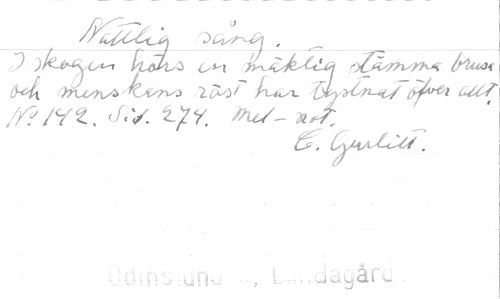 Nattlig sång.
I skogen hörs en mäktig stämma brusa
och menskans röst har tystnat öfver allt.
No 142. Sid. 274. Mel-not.
C. Gurlitt.
Odinslund, Lundagård